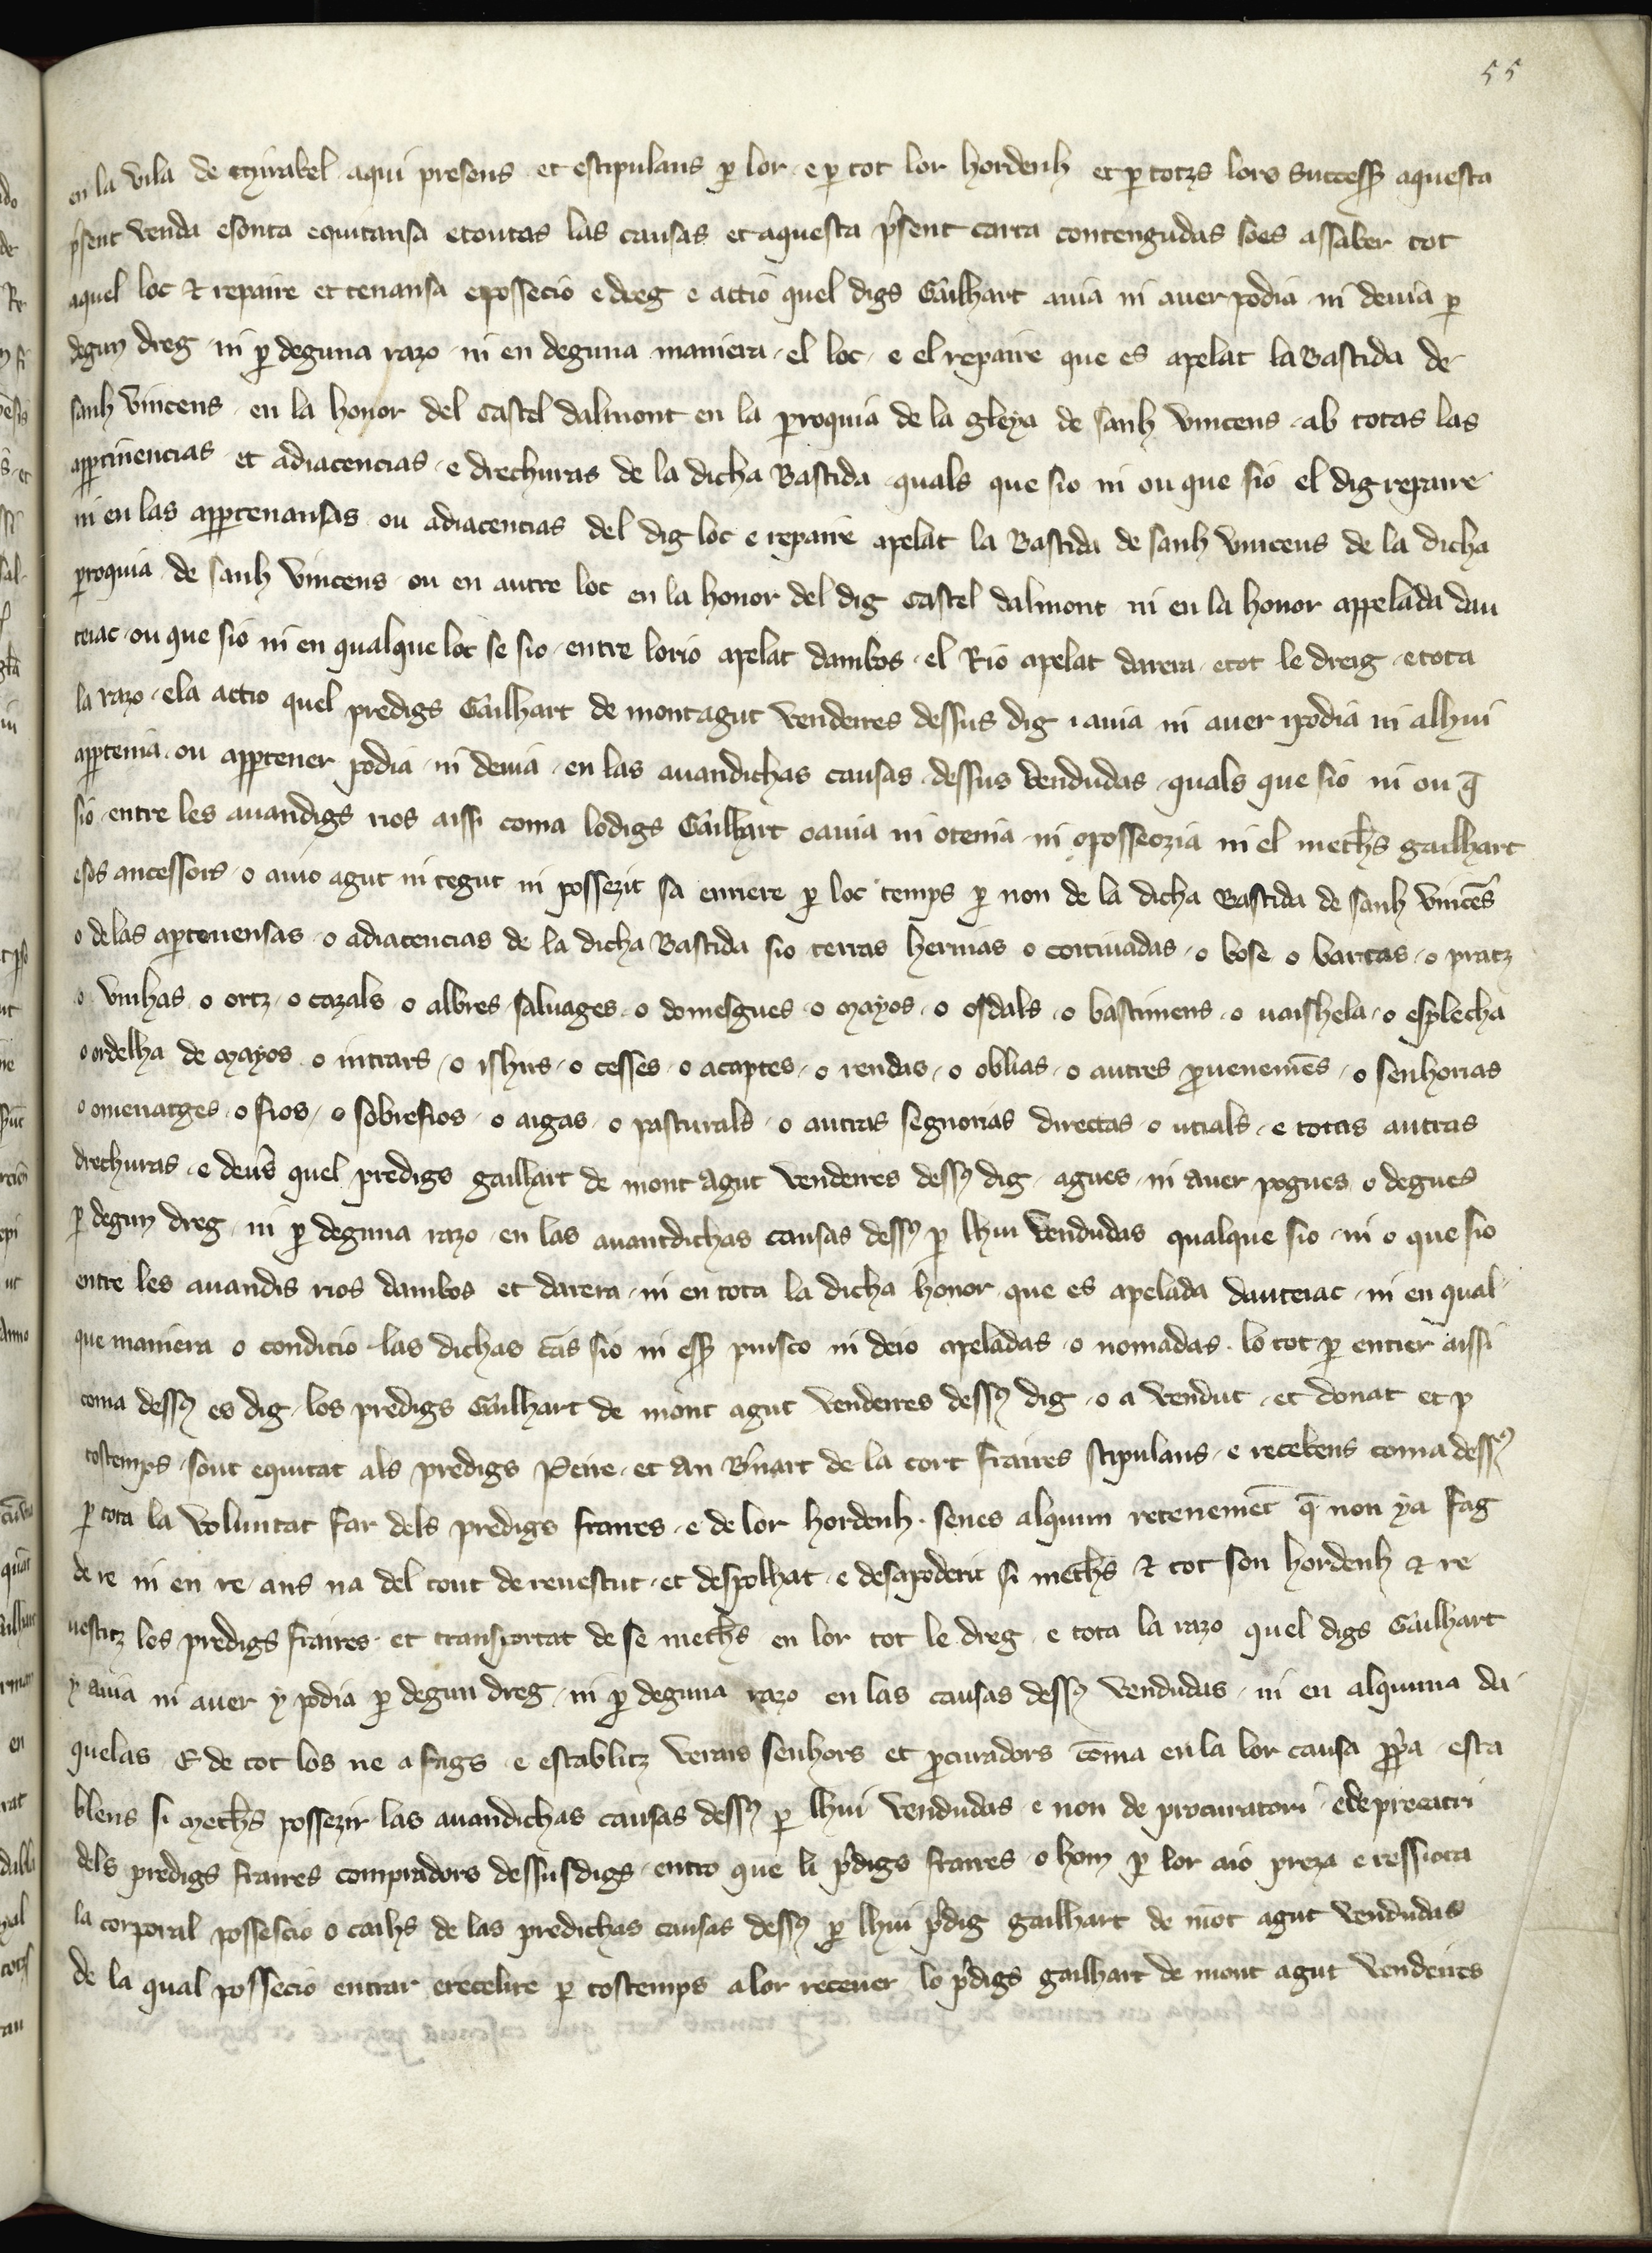 55
en la vila de Mirabel aqui presens et estipulans p lor e p tot lor hordenh et p totzs lors success aquesta
p'sent venda esouta equitansa etoutas las causas et aquesta p'sent carta contengudas soes assaber tot
aquel loc & repaire et tenansa e possecio e dreg e actio quel digs Gailhart auia ni auer podia ni deuia p
degun dreg ni p deguna razo ni en deguna maniera el loc e el repaire que es apelat la Bastida de
sanh vincens en la honor del castel dalmont en la proquia de la gleya de sanh vincens ab totas las
appertinencias et adiacencias e drechuras de la dicha Bastida quals que sio ni ou que sio el dig repaire
ni en las appertenansas ou adiacencias del dig loc e repaire apelat la Bastida de sanh vincens de la dicha
proquia de sanh vincens ou en autre loc en la honor del dig castel dalmont ni en la honor appelada dau
teiac ou que sio ni en qualque loc se sio entre lorio apelat dambos el Rio apelat darera etot le dreig etota
la razo ela actio quel predigs Gailhart de montagut vendeires dessus dig i auia ni auer ipodia ni alhui
apptenia ou apptener podia ni deuia en las auandichas causas dessus vendudas quals que sio ni ou q̄
sio entre les auandigs rios aissi coma lodigs Gailhart oauia ni otenia ni opossezia ni el meths gailhart
esos ancessors o auio agut ni tegut ni possezit sa enriere p loc temps p non de la dicha Bastida de sanh vincēs
o delas aptenensas o adiacencias de la dicha Bastida sio terras hermas o coitiuadas o bosc o bartas o pratz
o vinhas o ortz o cazals o albres saluages o domesgues o mayos o osdals o bastimens o uaishela o esplecha
o ordelha de mayos o intrars o ishirs o cesses o acaptes o rendas o oblias o autres prouenemēs o senhorias
o omenatges o fios o sobrefios o aigas o pasturals o autras segnorias directas o utials e totas autras
drechuras e deus quel predigs gailhart de mont agut vendeires dess9 dig agues ni auer pogues o degues
p degun dreg ni p deguna razo en las auantdichas causas dess9 p lhui vendudas qualque sio ni o que sio
entre les auandis rios dambos et darera ni en tota la dicha honor que es apelada dauteiac ni en qual
que maniera o condicio las dichas cās sio ni ess puisco ni deio apeladas o nomadas lo tot p entier aissi
coma dess9 es dig los predigs Gailhart de mont agut vendeires dess9 dig o a vendut et donat et p
tostemps sout equitat als predigs Peire et an B'nart de la cort fraires stipulans e recebens coma dess9
p tota la voluntat far dels predigs fraires e de lor hordenh senes alqun retenemēt q̄ non ya fag
de re ni en re ans na del tout de reuestut et despolhat e desapoderit si meths & tot son hordenh & re
uestitz los predigs fraires et transportat de se meths en lor tot le dreg e tota la razo quel digs Gailhart
y auia ni auer y podia p degun dreg ni p deguna razo en las causas dess9 vendudas ni en alquna da
quelas E de tot los ne a fags e establitz verais senhors et procuradors coma en la lor causa pp̄a esta
blens si meths possezir las auandichas causas dess9 p lhui vendudas e non de procuratori e de precatri
dels predigs fraires compradors dessusdigs entro que li p'digs fraires o hom p lor aio preza e ressiota
la corporal possescio o caihs de las predichas causas dess9 p lhui p'dig gailhart de mōt agut vendudas
de la qual possecio entrar erecebre p tostemps a lor retener lo p'digs gailhart de mont agut vendeires